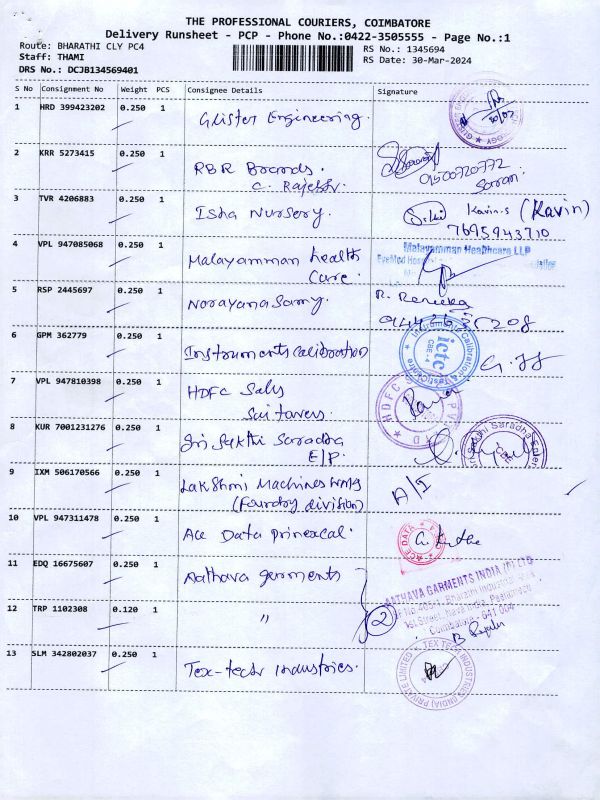 THE PROFESSIONAL COURIERS, COIMBATORE
Delivery Runsheet - PCP - Phone No.:0422-3505555 - Page No.:1
Route: BHARATHI CLY PC4
RS No.: 1345694
Staff: THAMI
RS Date: 30-Mar-2024
DRS No.: DCJB134569401
S No Consignment No Weight PCS Consignee Details Signature
1 HRD 399423202 0.250 1 Glister Engineering.
2 KRR 5273415 0.250 1 RBR Brands.
C. Rajesh.
9500720772
Saran
3 TVR 4206883 0.250 1 Isha Nursery. Kavin.s (Kavin)
7695943710
4 VPL 947085068 0.250 1 Malayamman health
Care.
Malayamman Healthcare LLP
5 RSP 2445697 0.250 1 Narayanasamy. R. Renuka
6 GPM 362779 0.250 1 Instruments calibration
Instruments Calibration
ictc
CBE-4
7 VPL 947810398 0.250 1 HDFC Sales
Sai tavers.
HDFC
8 KUR 7001231276 0.250 1 Sri Sakthi Saradha
E/P.
Sakthi Saradha
9 IXM 506170566 0.250 1 Lakshmi Machines Works
(Foundry division)
A/I
10 VPL 947311478 0.250 1 Ace Data Prinexcal.
ACE DATA
11 EDQ 16675607 0.250 1 Aathava garments
AATHAVA GARMENTS INDIA (P) LTD
Coimbatore - 641 004
12 TRP 1102308 0.120 1 " 2
13 SLM 342802037 0.250 1 Tex-tech industries.
TEX TECH INDUSTRIES (INDIA) PRIVATE LIMITED